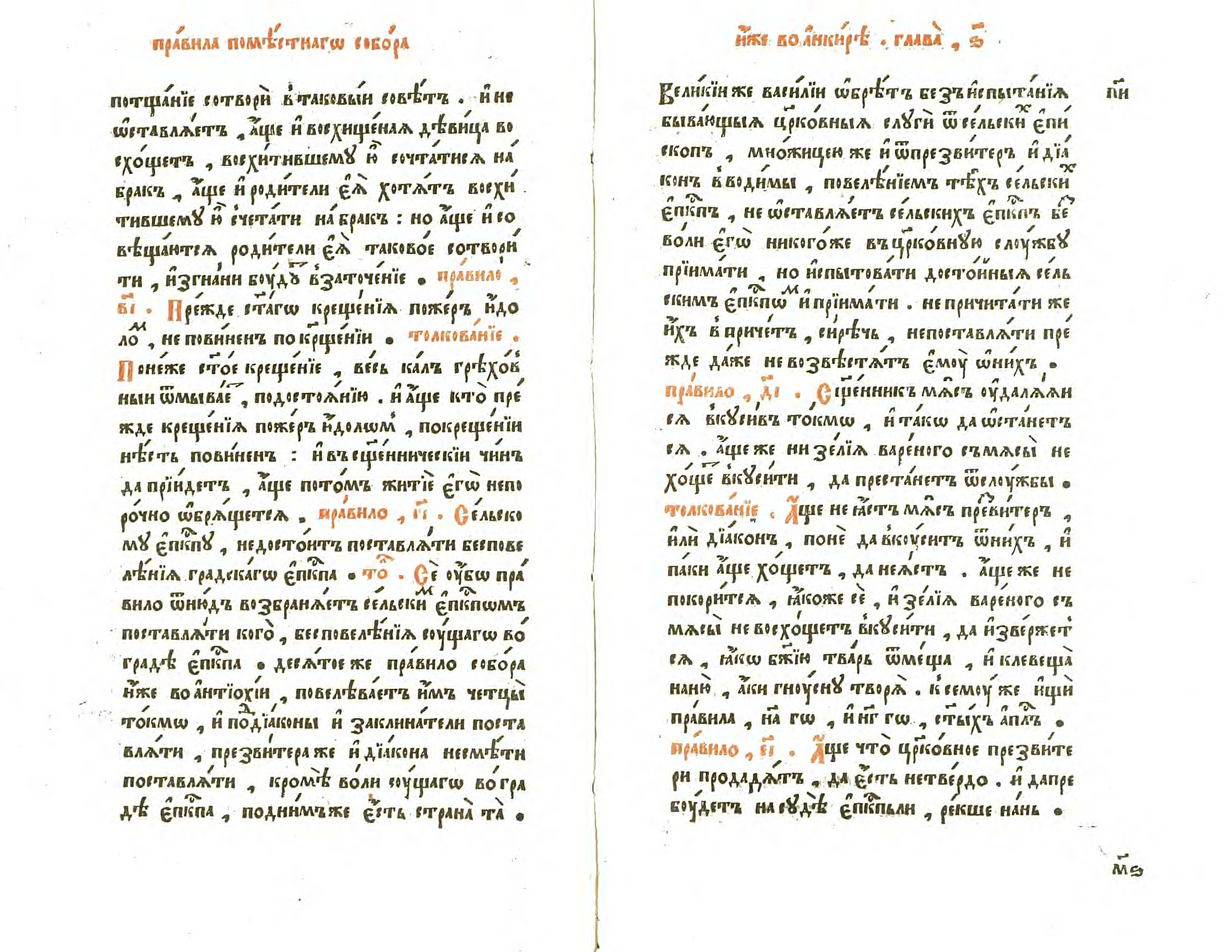 пра́вила помѣ́стнагѡ собо́ра
потща́нїе сотворѝ в̾таковы́и совѣ́тъ . и҆ не
ѡ҆ставлѧ́етъ , а҆́ще и҆ восхище́наѧ дѣви́ца во
схо́щетъ , восхити́вшему ю҆̀ сочта́тисѧ на́
бракъ , а҆́ще и҆ роди́тели є҆ѧ̀ хотѧ́тъ восхи́
тившему ю҆̀ счета́ти на́ бракъ : но а҆́ще и҆ со
вѣща́ютсѧ роди́тели є҆ѧ̀ таково́е сотвори́
ти , и҆згна́ни боу́дꙋт̾ в̾заточе́нїе . пра́вило ,
в҃і . Пре́жде ст҃а́гѡ креще́нїѧ поже́ръ и҆́до
ло́м , не пови́ненъ по кр҃ще́нїи . толкова́нїе .
Поне́же ст҃о́е креще́нїе , ве́сь ка́лъ грѣхо́в
ныи ѿмыва́е , подостоѧ́нїю . и҆ а҆́ще кто̀ пре́
жде креще́нїѧ поже́ръ и҆́доломъ , покреще́нїи
нѣ́сть пови́ненъ : и҆ въ сщ҃е́нническїи чи́нъ
да прїи́детъ , а҆́ще пото́мъ житїѐ є҆гѡ̀ непо
ро́чно ѡ҆брѧ́щетсѧ . пра́вило , г҃і . Се́льско
му є҆п҃кпꙋ , недосто́итъ поставлѧ́ти беспове
лѣ́нїѧ градска́гѡ є҆п҃кпа . то . Сѐ оу҆́бѡ пра́
вило ѿню́дъ возбранѧ́етъ се́льским є҆п҃кпѡмъ
поставлѧ́ти кого̀ , бесповелѣ́нїѧ соу́щагѡ во́
градѣ є҆п҃кпа . десѧ́тое же пра́вило собо́ра
и҆́же во а҆нтїо́хїи , повелѣва́етъ и҆̀мъ четцы̀
то́кмѡ , и҆ подїа́коны и҆ заклина́тели поста
влѧ́ти , презви́тера же и҆ дїа́кона несмѣ́ти
поставлѧ́ти , кромѣ̀ во́ли соу́щагѡ во́гра
дѣ є҆п҃кпа , подни́мъже є҆́сть страна̀ та̀ .
и҆́же во а҆нки́рѣ . глава̀ , ѕ҃
Вели́кїи же васи́лїи ѡ҆брѣ́тъ безъ и҆спыта́нїѧ п҃и
быва́ющыѧ цр҃ко́вныѧ слꙋгѝ ѿ се́льских є҆пи́
скопъ , мно́жицею же и҆ ѿпрезви́теръ и҆ дїа́
конъ в̾води́мы , повелѣ́нїемъ тѣ́хъ се́льских
є҆п҃кпъ , не ѡ҆ставлѧ́етъ се́льскихъ є҆п҃кпъ бе
во́ли є҆гѡ̀ никого́же въ цр҃ко́внꙋю слоу́жбꙋ
прїима́ти , но и҆спытова́ти досто́йныѧ се́ль
скимъ є҆п҃кпѡм и҆ прїима́ти . не причита́ти же
и҆́хъ в̾ при́четъ , си́рѣчь , непоставлѧ́ти пре́
жде да́же не возвѣстѧ́тъ є҆моу̀ ѡ҆ни́хъ .
пра́вило , д҃і . Сщ҃е́нникъ мѧ́съ оу҆далѧ́ѧи
сѧ в̾куси́въ то́кмѡ , и҆ та́кѡ да ѡ҆ста́нетъ
сѧ . а҆́ще же ни зе́лїѧ варе́ного съ мѧ́сы̀ не
хо́ще в̾куси́ти , да преста́нетъ ѿслоу́жбы .
толкова́нїе . А҆́ще не ꙗ҆́стъ мѧ́съ пре́витеръ ,
и҆лѝ дїа́конъ , понѐ да в̾коу́ситъ ѿни́хъ , и҆
па́ки а҆́ще хо́щетъ , да не ꙗ҆́стъ . а҆́ще же не
покори́тсѧ , ꙗ҆́коже сѐ , и҆ зе́лїѧ варе́ного съ
мѧ́сы̀ не восхо́щетъ в̾куси́ти , да и҆зве́ржет
сѧ , ꙗ҆́кѡ бж҃їю тва́рь ѿме́ща , и҆ клевеща̀
наню̀ , а҆́ки гноу́снꙋ творѧ̀ . к̾ семоу́ же и҆щѝ
пра́вила , н҃а гѡ , и҆ н҃г гѡ , ст҃ы́хъ а҆п҃лъ .
пра́вило , е҃і . А҆́ще что̀ цр҃ко́вное презви́те
ри продадѧ́тъ , да є҆́сть нетве́рдо . и҆ да пре
боу́детъ на сꙋдѣ̀ є҆п҃кпьли , ре́кше на́нь .
м҃ѕ